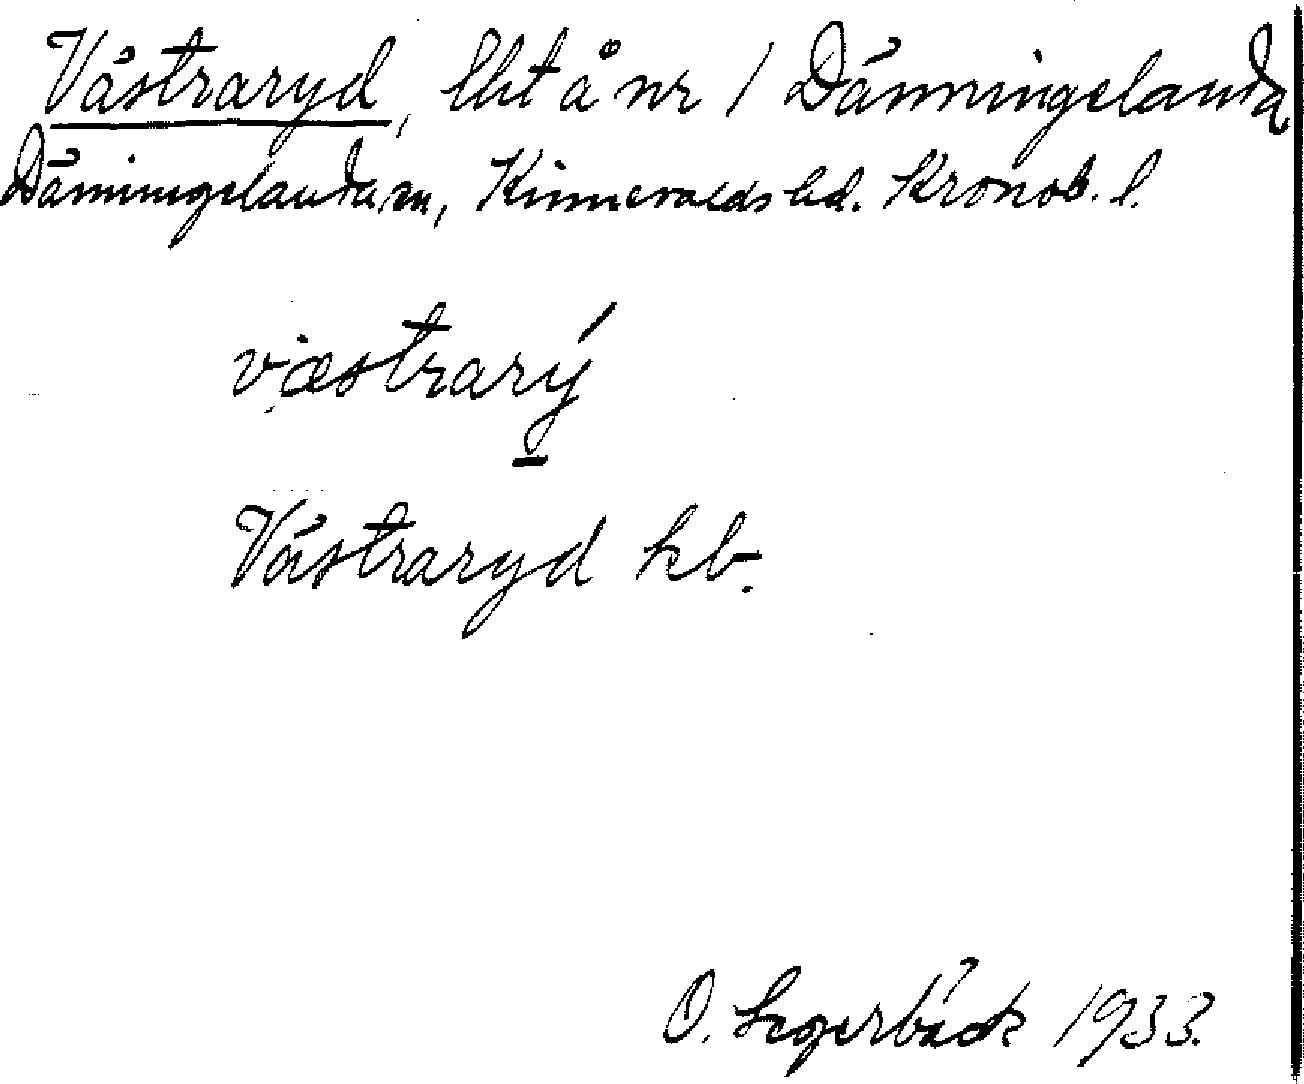 Västraryd, lht å nr 1 Dänningelanda
Dänningelanda sn, Kinnevalds hd. Kronob. l.
væstrarý
Västraryd kb.
O. Segerbäck 1933.